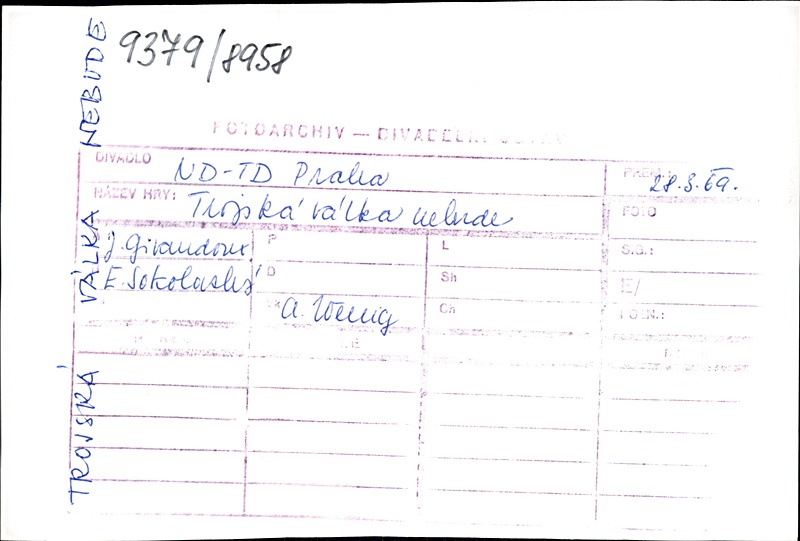 9379/8958
TROJSKÁ VÁLKA NEBUDE
FOTOARCHIV — DIVADELNÍ ÚSTAV
DIVADLO ND-TD Praha
PREM.: 28.3.69.
NÁZEV HRY: Trojská válka nebude
FOTO
J. Giraudoux
P
L
SIG.:
E. Sokolovský
D
Sh
E/
A. Wenig
Ch
POZN.: